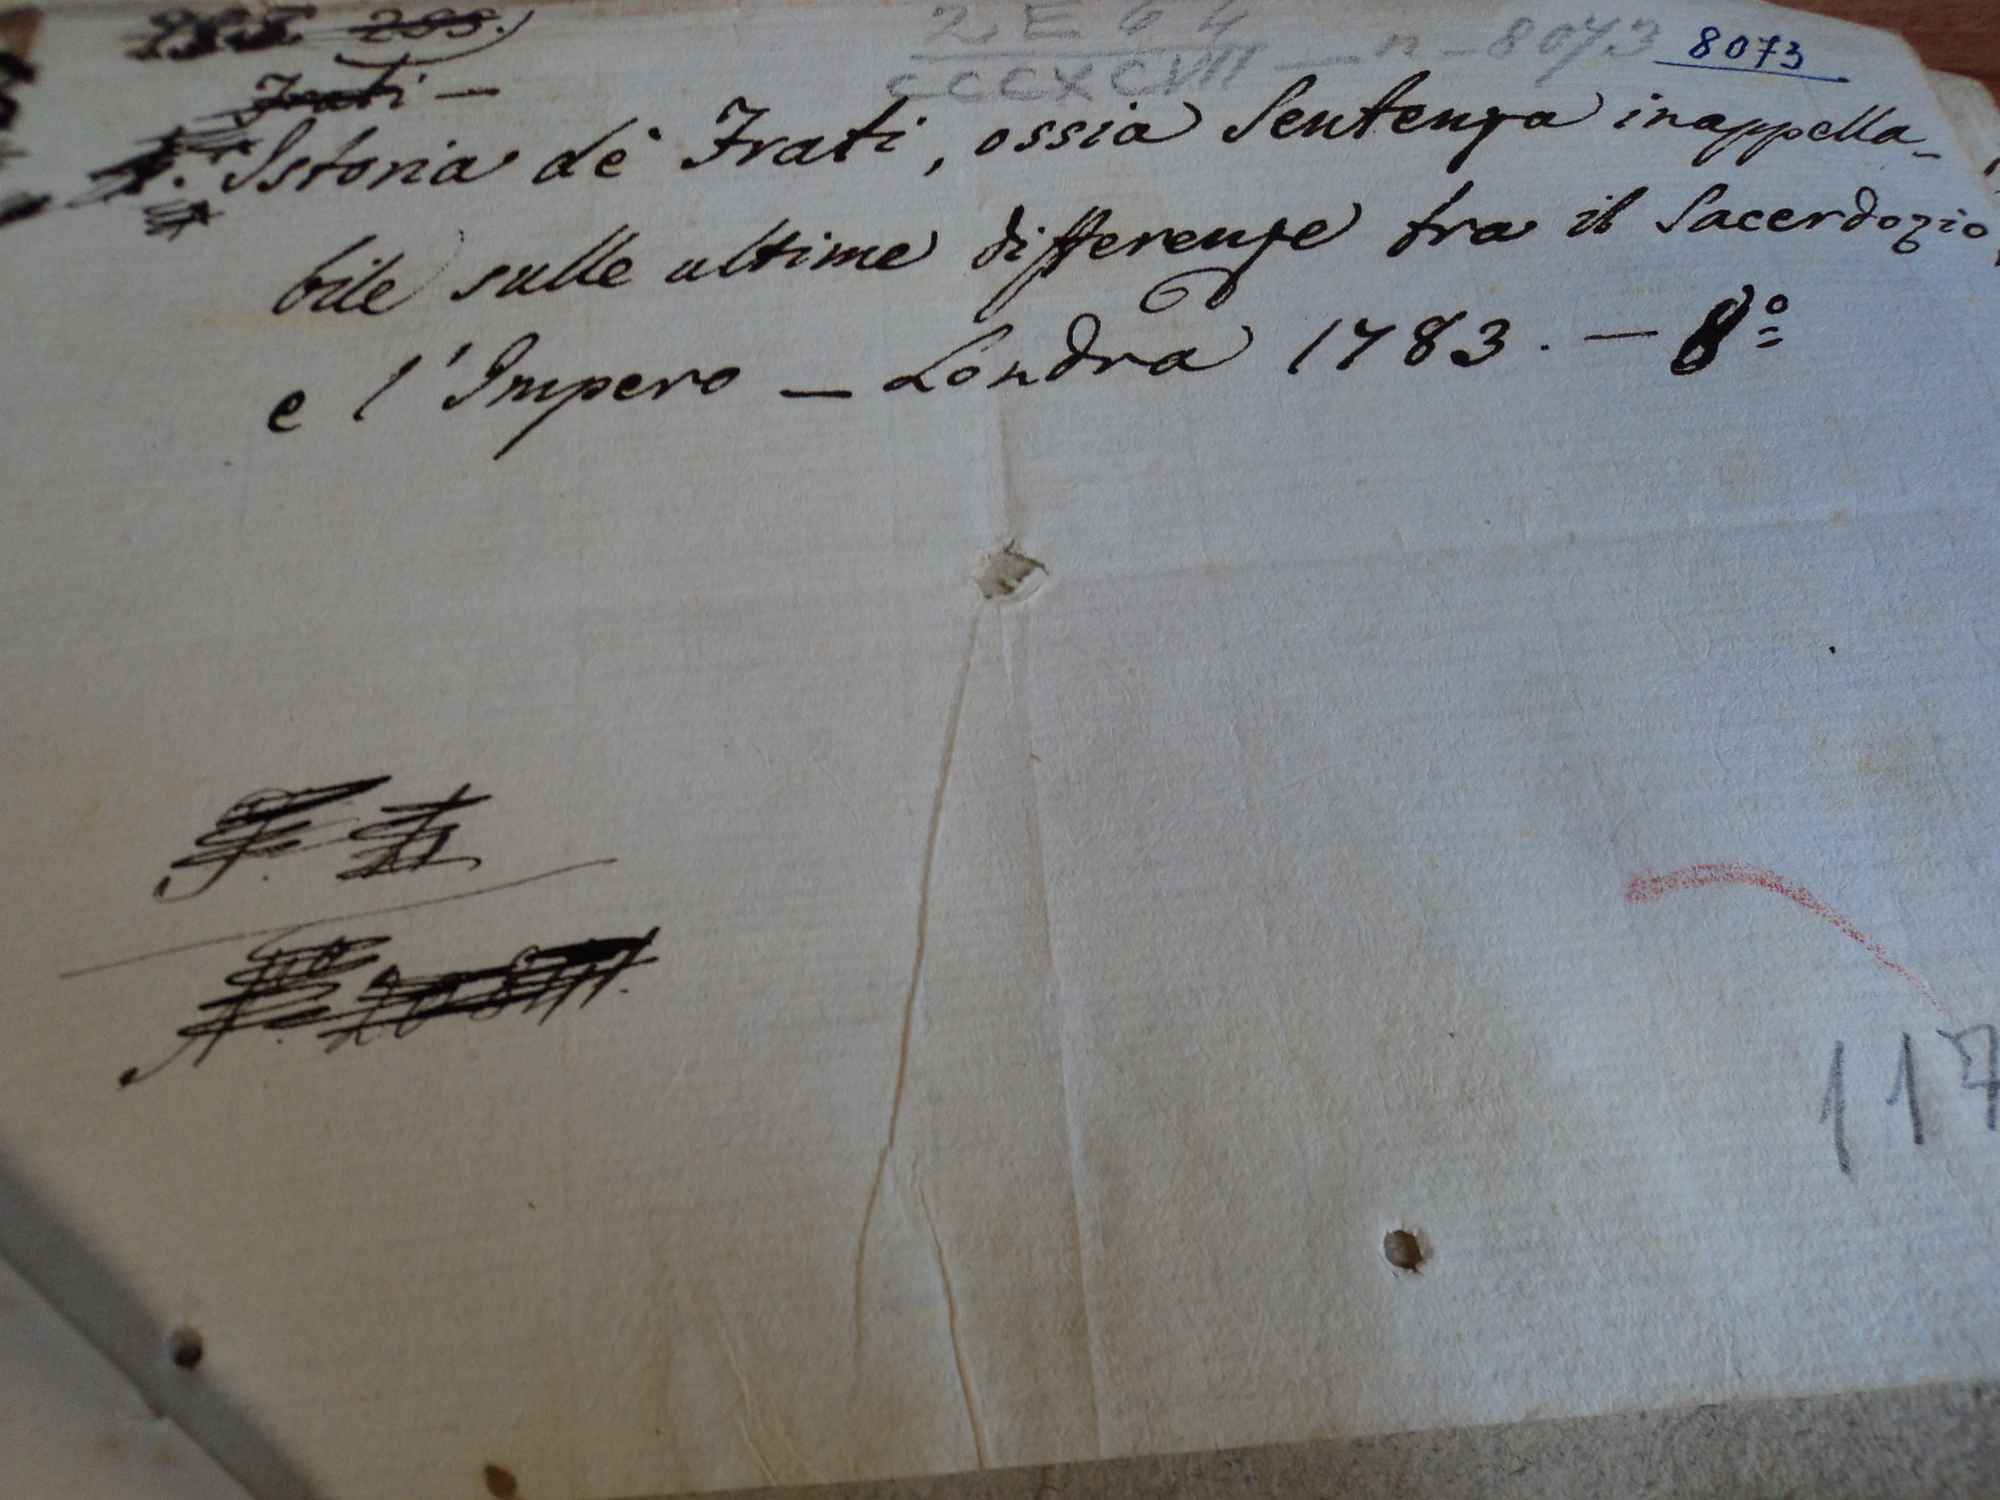 2. E 6 4
CCCXCVII — n - 8073
8073
Frati —
Istoria de' Frati, ossia Sentenza inappella-
bile sulle ultime differenze tra il Sacerdozio
e l'Impero — Londra 1783. — 8º
117